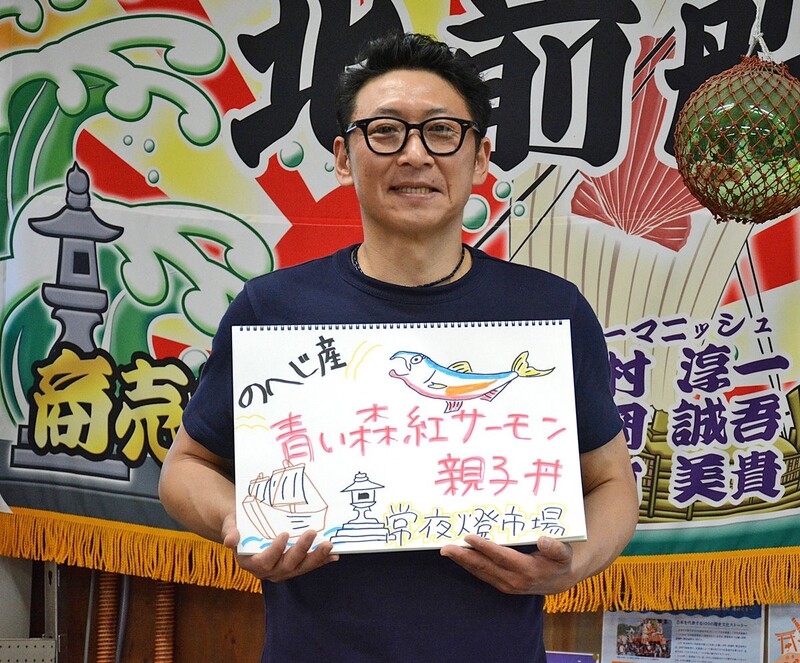 北前船
商売
ーマニッシュ
村 淳一
誠吾
美貴
のへじ産
青い森紅サーモン
親子丼
常夜燈市場